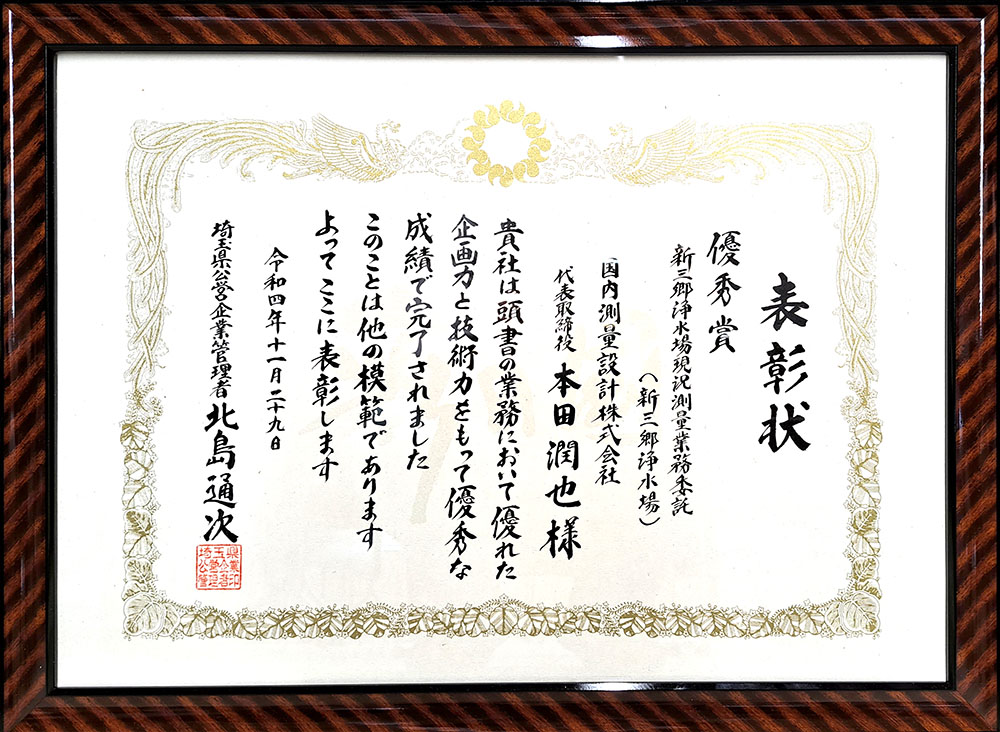 表彰状
優秀賞
新三郷浄水場現況測量業務委託
（新三郷浄水場）
国内測量設計株式会社
代表取締役 本田潤也様
貴社は頭書の業務において優れた
企画力と技術力をもって優秀な
成績で完了されました
このことは他の模範であります
よってここに表彰します
令和四年十一月二十九日
埼玉県公営企業管理者 北島通次